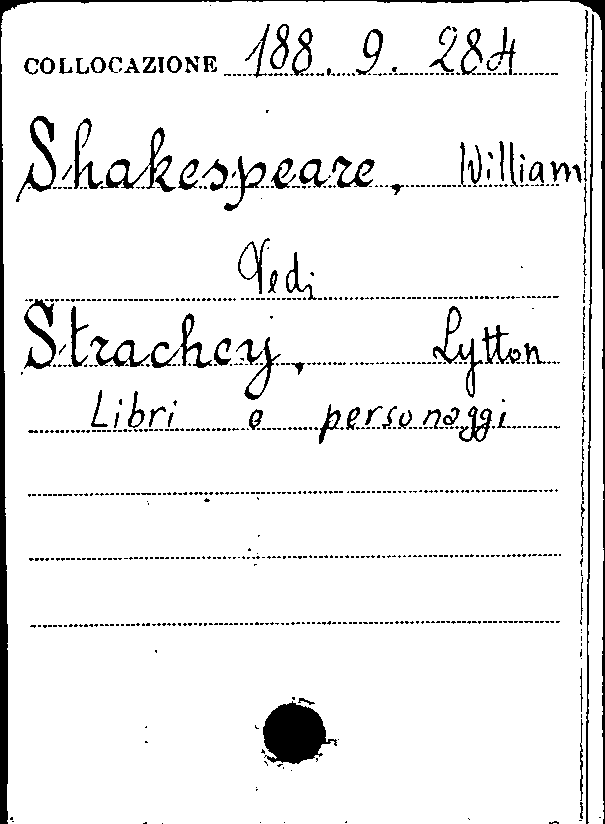 COLLOCAZIONE 188. 9. 284
Shakespeare, William
Vedi
Strachey, Lytton
Libri e personaggi